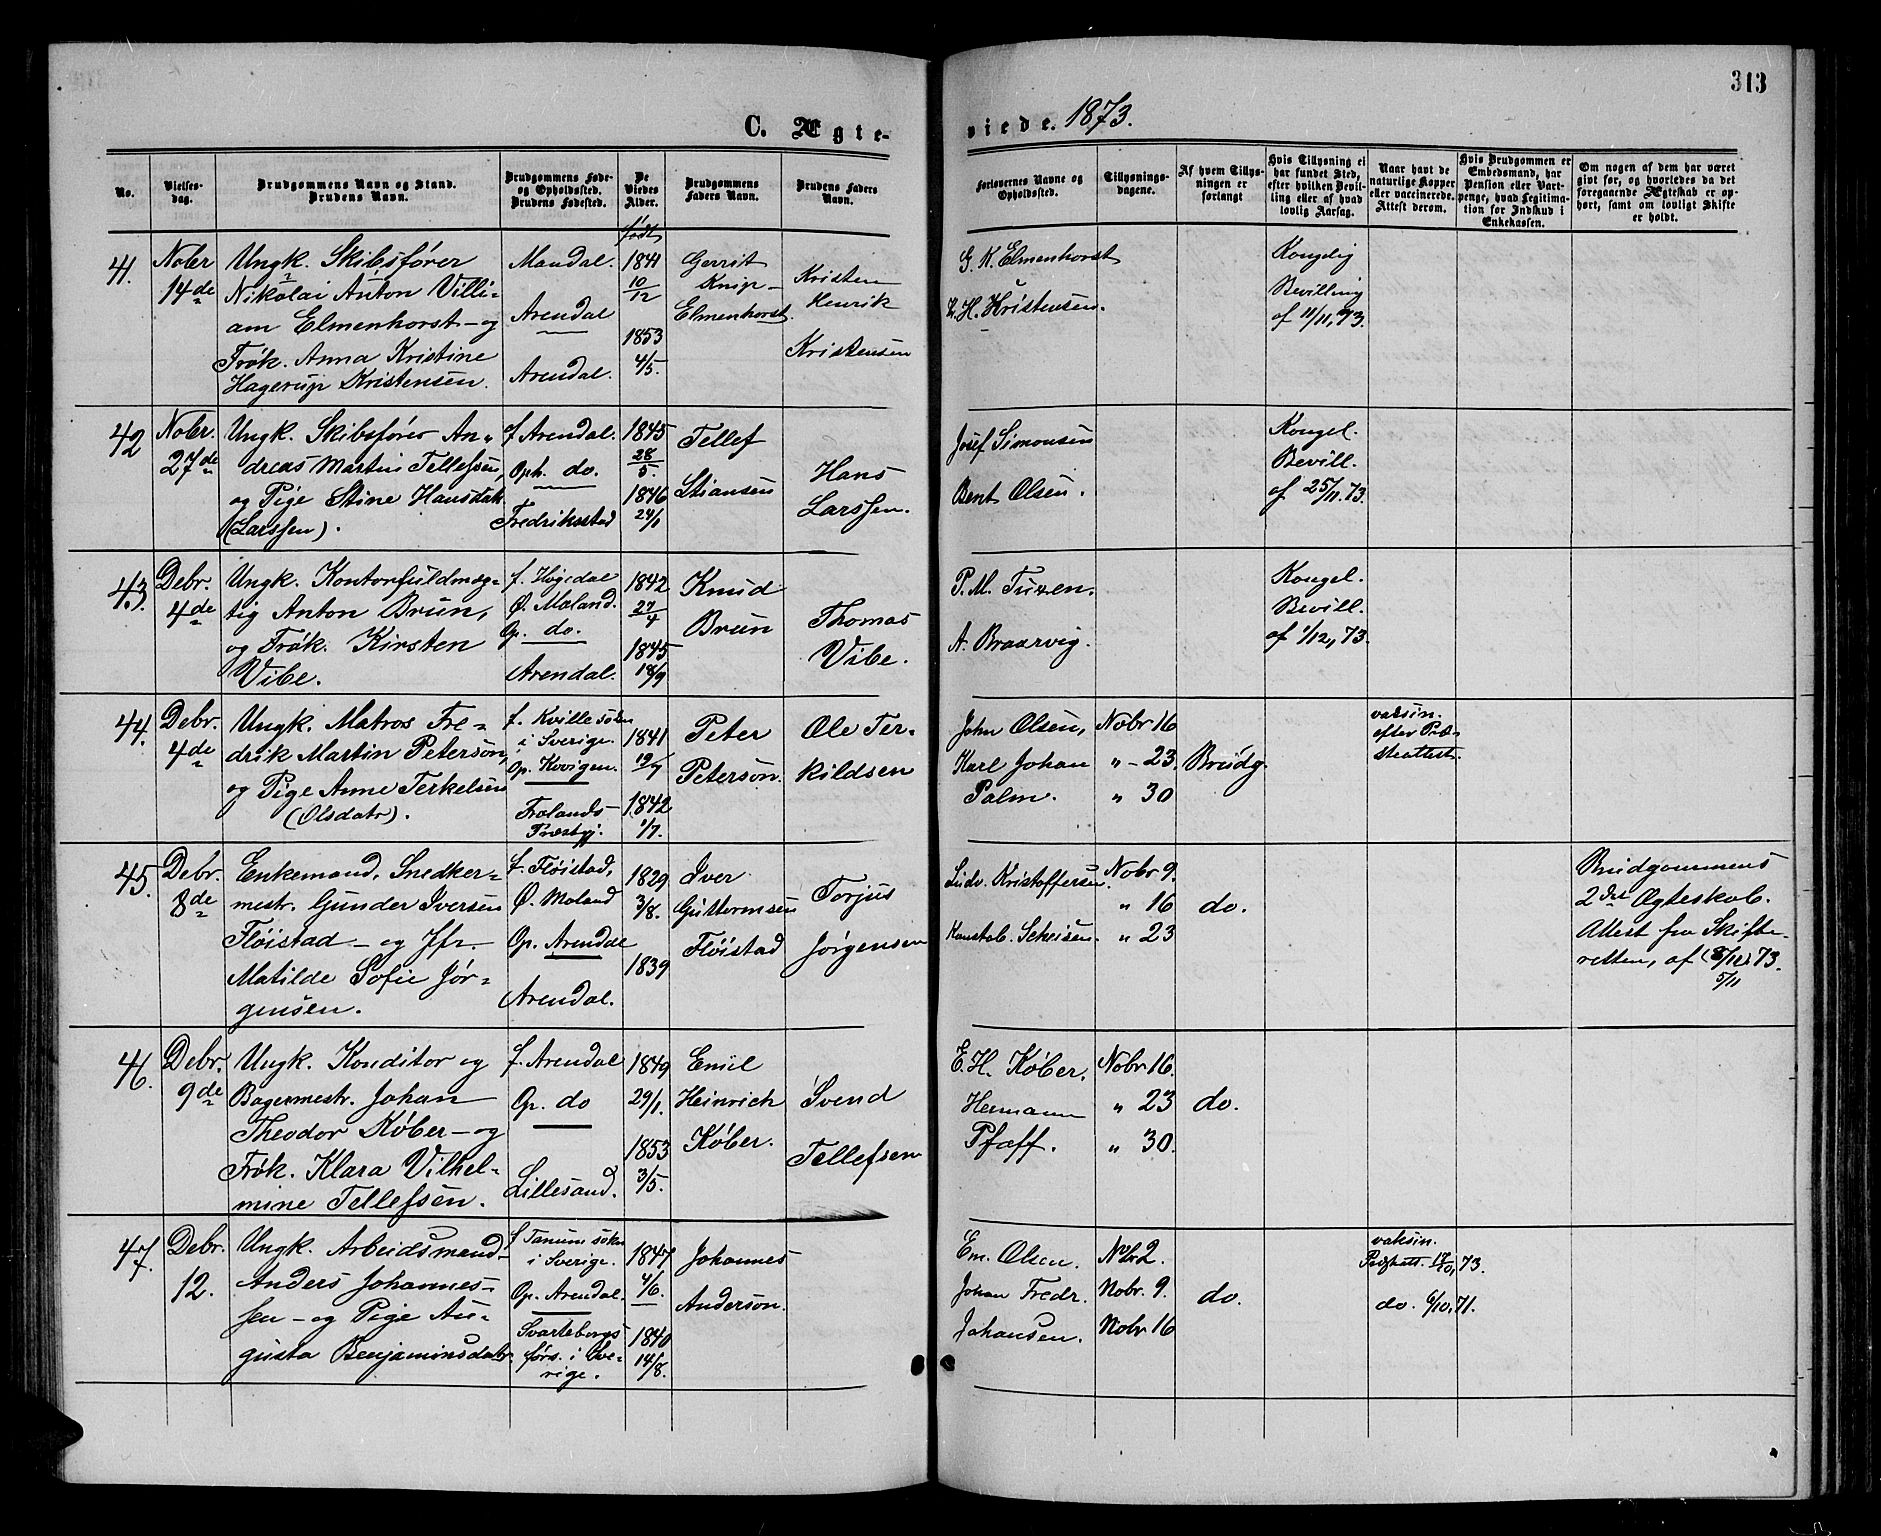 313
C. Ægte-
viede. 1873.
No.
Vielses-
dag.
Brudgommens Navn og Stand.
Brudens Navn.
Brudgommens Føde-
og Opholdssted.
Brudens Fødested.
De
Viedes
Alder.
Brudgommens
Faders Navn.
Brudens Faders
Navn.
Forlovernes Navne og
Opholdssted.
Tillysnings-
dagene.
Af hvem Tillys-
ningen er
forlangt
Hvis Tillysning ei
har fundet Sted,
efter hvilken Bevil-
ling eller af hvad
lovlig Aarsag.
Naar havt de
naturlige Kopper
eller vaccinerede.
Attest derom.
Hvis Brudgommen er
Embedsmand, har
Pension eller Vart-
penge, hvad Legitima-
tion for Indskud i
Enkekassen.
Om nogen af dem har været
gift før, og hvorledes da det
foregaaende Ægteskab er op-
hørt, samt om lovligt Skifte
er holdt.
født
41.
Nobr
14de
Ungk. Skibsfører
Nikolai Anton Villi-
am Elmenhorst - og
Frøk. Anna Kristine
Hagerup Kristensen.
Mandal.
Arendal
Arendal.
1841
10/12
1853
4/5.
Gerrit
Knip-
Elmenhorst.
Kristen
Henrik
Kristensen
G. K. Elmenhorst
K. H. Kristensen.
Konglig
Bevilling
af 11/11, 73.
42
Nobr.
27de
Ungk. Skibsfører An-
dreas Martin Tellefsen,
og Pige Stine Hansdatr.
(Larssen).
f. Arendal.
Oph. do.
Fredriksstad
1845
28/5.
1846
24/1
Tellef
Stiansen
Hans
Larssen.
Josef Simonsen
Bent Olsen.
Kongel.
Bevill.
af 25/11. 73.
43.
Debr.
4de
Ungk. Kontorfuldmæg-
tig Anton Brun,
og Frøk. Kirsten
Vibe.
f. Høgedal
Ø. Moland.
Op. do.
Arendal.
1842
27/4
1845
18/9
Knud
Brun
Thomas
Vibe.
P. M. Tuxen.
A. Braarvig.
Kongel.
Bevill.
af 1/12, 73.
44.
Debr.
4de
Ungk. Matros Fre-
drik Martin Peterson,
og Pige Anne Terkelsen
(Olsdatr).
f. Kville sókn
i Sverige.
Op. Kovigen.
Frolands-
Præstgj.
1841
19/7
1842
1/7.
Peter
Peterson.
Ole Ter-
kildsen
John Olsen,
Karl Johan
Palm.
Nobr 16
" - 23.
" 30
Brudg.
vaksin.
efter Præ-
steattest.
45.
Debr.
8de
Enkemand, Snedker-
mestr. Gunder Iversen
Fløistad - og Jfr.
Matilde Sofie Jør-
gensen.
f. Fløistad,
Ø. Moland
Op. Arendal
Arendal.
1829
3/8.
1839
Iver
Guttormsen
Fløistad
Torjus
Jørgensen
Ludv. Kristoffersen.
Konstab. Scheisen.
Nobr 9.
" 16
" 23
do.
Brudgommens
2det Ægteskab.
Attest fra Skifte-
retten, af (8/12) 73.
5/11
46.
Debr.
9de
Ungk. Konditor og
Bagermestr. Johan
Theodor Køber - og
Frøk. Klara Vilhel-
mine Tellefsen.
f. Arendal
Op. do
Lillesand.
1849
29/1.
1853
3/5.
Emil
Heinrich
Køber.
Svend
Tellefsen
E. H. Køber.
Hermann
Pfaff.
Nobr 16.
" 23
" 30.
do.
47.
Debr.
12.
Ungk. Arbeidsmand
Anders Johannes-
sen - og Pige Au-
gusta Benjaminsdatr.
f Tanum sókn
i Sverige.
Op. Arendal.
Svarteborgs
førs. i Sve-
rige.
1847
4/6.
1840
14/8.
Johannes
Anderson.
Em. Olsen.
Johan Fredr.
Johansen.
Nobr 2.
Nobr. 9.
Nobr 16
do.
vaksin.
73.
do. 6/10, 71.